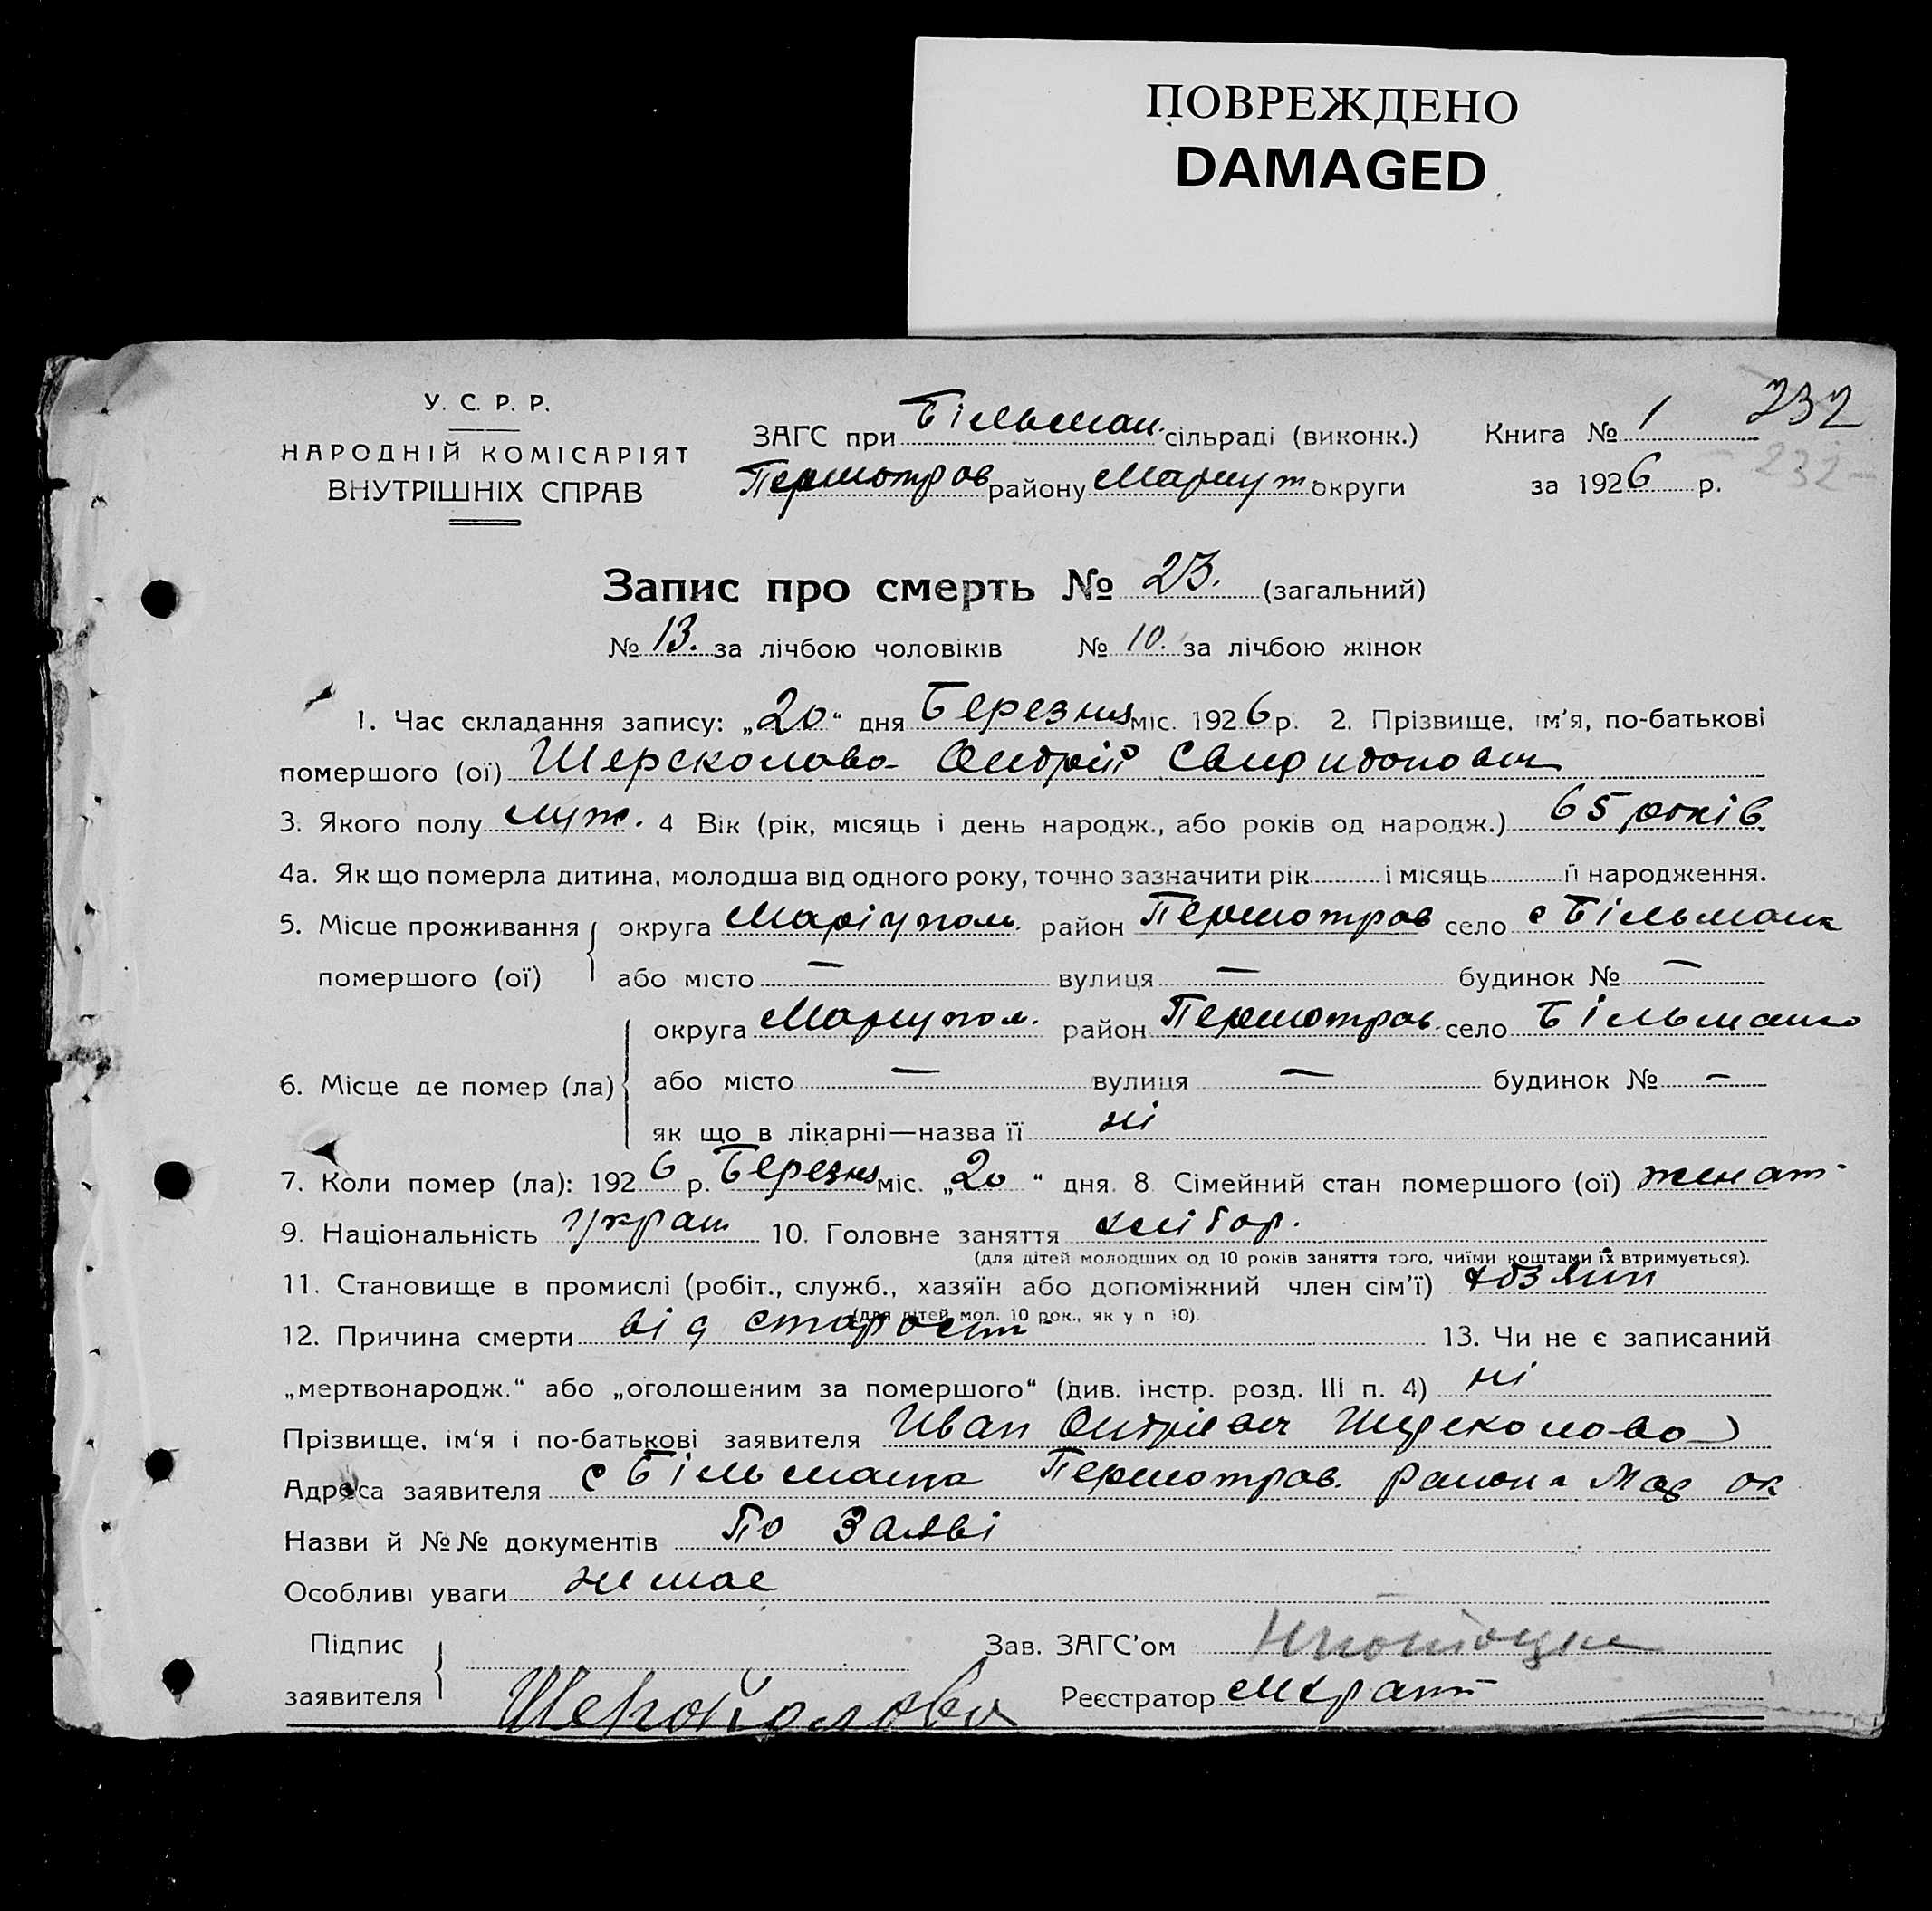 ПОВРЕЖДЕНО
DAMAGED
У. С. Р. Р.
НАРОДНІЙ КОМІСАРІЯТ
ВНУТРІШНІХ СПРАВ
ЗАГС при Більман. сільраді (виконк.)
Першотров району Мариуп. округи
Книга № 1 232
за 1926 р. - 232 -
Запис про смерть № 23. (загальний)
№ 13. за лічбою чоловіків № 10. за лічбою жінок
1. Час складання запису: „20“ дня Березня міс. 1926 р. 2. Прізвище, ім'я, по-батькові
помершого (ої) Андрій Свиридонович
3. Якого полу муж. 4 Вік (рік, місяць і день народж., або років од народж.) 65 років
4а. Як що померла дитина, молодша від одного року, точно зазначити рік і місяць її народження.
5. Місце проживання помершого (ої) округа Маріуполь. район Першотров село с Більманк
або місто — вулиця — будинок № —
6. Місце де помер (ла) округа Мариупол. район Першотров. село Більманко
або місто — вулиця — будинок № —
як що в лікарні—назва її ні
7. Коли помер (ла): 1926 р. Березня міс. „20“ дня. 8 Сімейний стан помершого (ої) женат
9. Національність Украін 10. Головне заняття хлібор.
(для дітей молодших од 10 років заняття того, чиїми коштами їх втримується).
11. Становище в промислі (робіт., служб., хазяїн або допоміжний член сім'ї) хозяин
(для дітей мол. 10 рок., як у п 10).
12. Причина смерти від старости 13. Чи не є записаний
„мертвонародж.“ або „оголошеним за помершого“ (див. інстр. розд. III п. 4) ні
Прізвище, ім'я і по-батькові заявителя Иван Андріевич
Адреса заявителя с Першотров. района Мар ок
Назви й №№ документів По Заяві
Особливі уваги немае
Підпис заявителя
Зав. ЗАГС'ом
Реєстратор